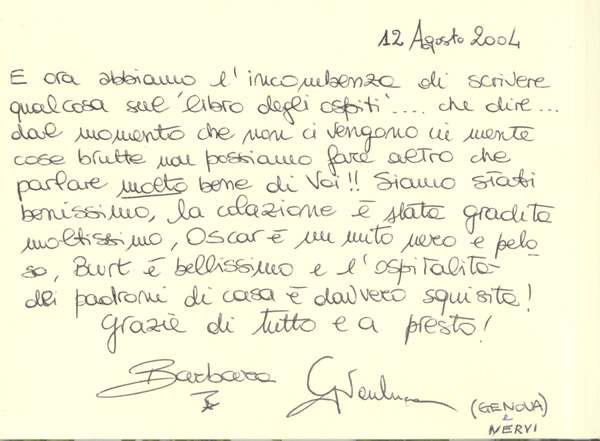 12 Agosto 2004
E ora abbiamo l'incombenza di scrivere
qualcosa sul 'libro degli ospiti'.... che dire...
dal momento che non ci vengono in mente
cose brutte non possiamo fare altro che
parlare molto bene di Voi!! Siamo stati
benissimo, la colazione è stata gradita
moltissimo, Oscar è un mito nero e pelo
so, Burt è bellissimo e l'ospitalità
dei padroni di casa è davvero squisita!
Grazie di tutto e a presto!
Barbara Gianluca
(GENOVA)
e
NERVI